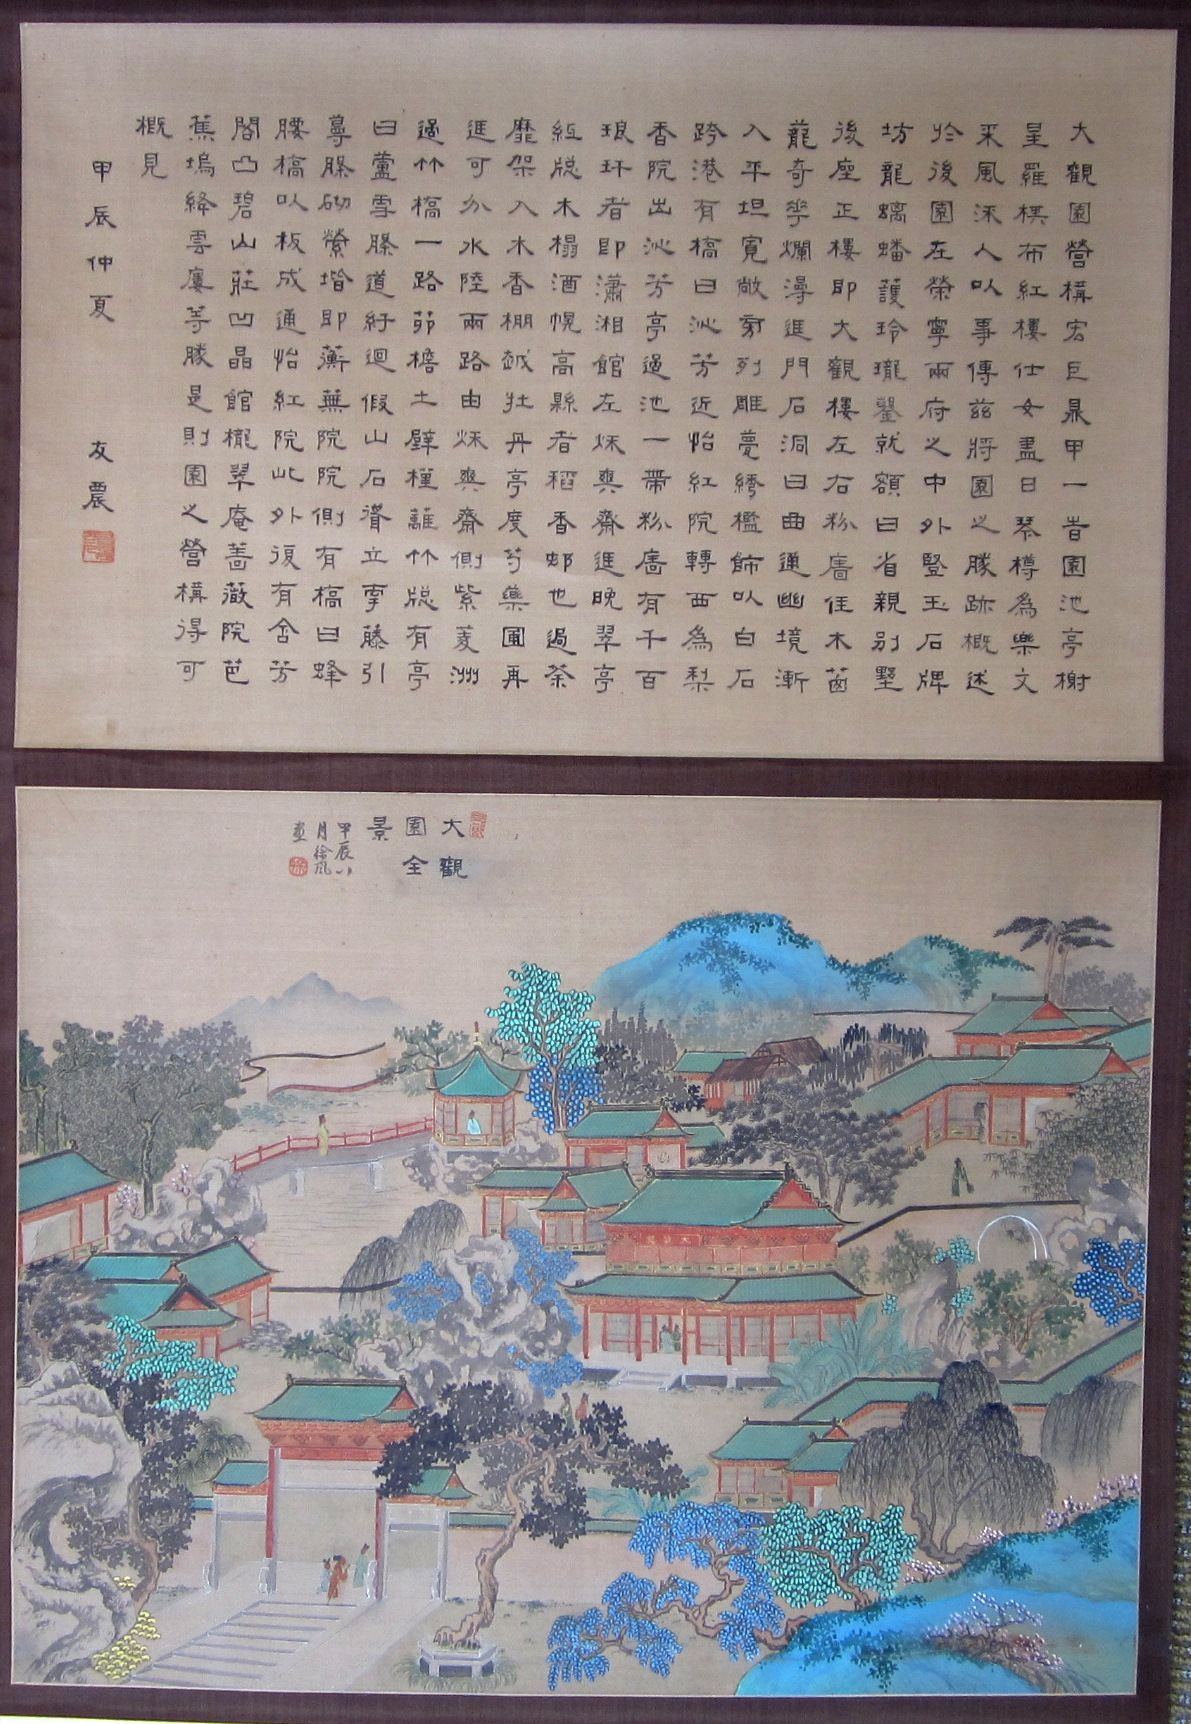 大觀園營構宏巨鼎甲一旹園池亭榭
呈羅棋布紅樓仕女盡日琴樽為樂文
采風流人以事傳茲將園之勝跡概述
於後園左榮寧兩府之中外豎玉石牌
坊龍螭蟠護玲瓏鑿就額曰省親別墅
後座正樓即大觀樓左右粉牆佳木茵
蘢奇花爛漫進門石洞曰曲通幽境漸
入平坦寬敞旁列雕甍綉檻飾以白石
跨港有橋曰沁芳近怡紅院轉西為梨
香院出沁芳亭過池一帶粉牆有千百
琅玕者即瀟湘館左秋爽齋進晚翠亭
紙牕木榻酒幌高縣者稻香邨也過荼
蘼架入木香棚越牡丹亭度芍藥圃再
進可分水陸兩路由秋爽齋側紫菱洲
過竹橋一路茆檐土壁槿蘺竹牕有亭
曰蘆雪勝道紆迴假山石聳立牽藤引
蔓勝砌縈堦即蘅蕪院院側有橋曰蜂
腰橋以板成通怡紅院此外復有含芳
閣凸碧山莊凹晶館櫳翠庵薔薇院芭
蕉塢絳雲廔等勝是則園之營構得可
概見
甲辰仲夏 友農
大觀
園全
景
甲辰八
月徐風
畫